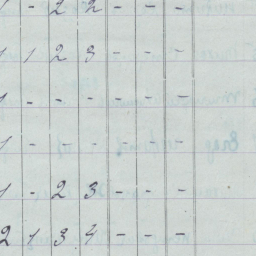 1 - 2 2 - - -
1 1 2 3 - - -
1 - - - - - -
1 - - - - - -
1 - 2 3 - - -
2 1 3 4 - - -